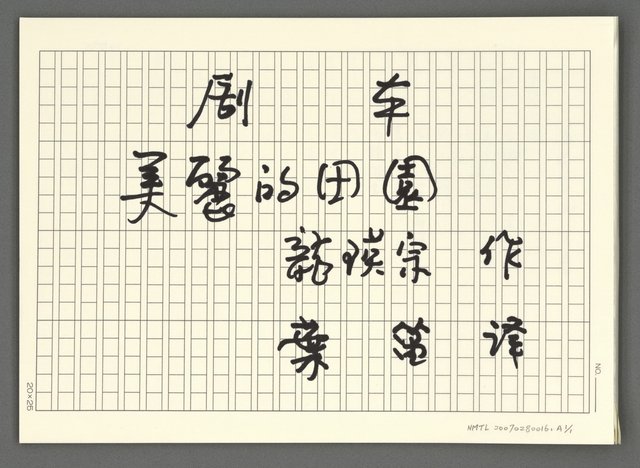 剧 本
美麗的田園
龍瑛宗 作
葉笛 譯
NO.
20×25
NMTL 20070280016. A 1/1